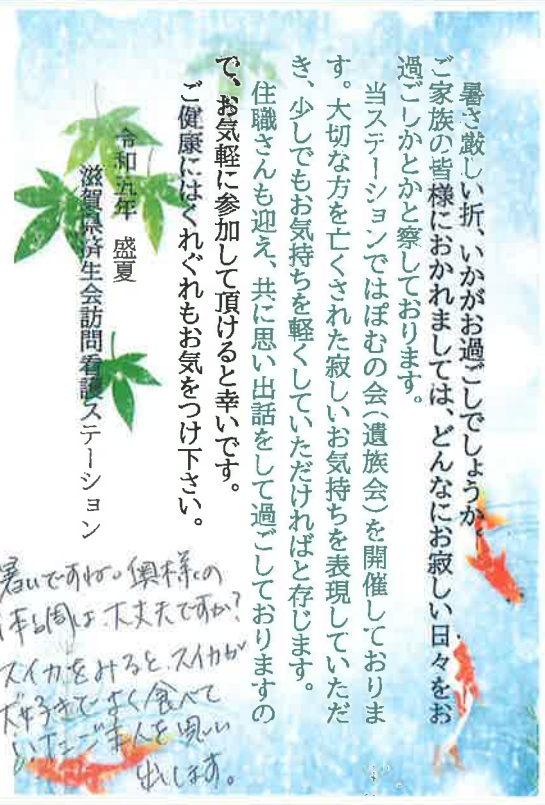 暑さ厳しい折、いかがお過ごしでしょうか。
ご家族の皆様におかれましては、どんなにお寂しい日々をお
過ごしかとかと察しております。
当ステーションではぽむの会(遺族会)を開催しておりま
す。大切な方を亡くされた寂しいお気持ちを表現していただ
き、少しでもお気持ちを軽くしていただければと存じます。
住職さんも迎え、共に思い出話をして過ごしておりますの
で、お気軽に参加して頂けると幸いです。
ご健康にはくれぐれもお気をつけ下さい。
令和五年 盛夏
滋賀県済生会訪問看護ステーション
暑いですね。奥様の
体調は大丈夫ですか?
スイカをみると、スイカが
大好きでよく食べて
いたご主人を思い
出します。